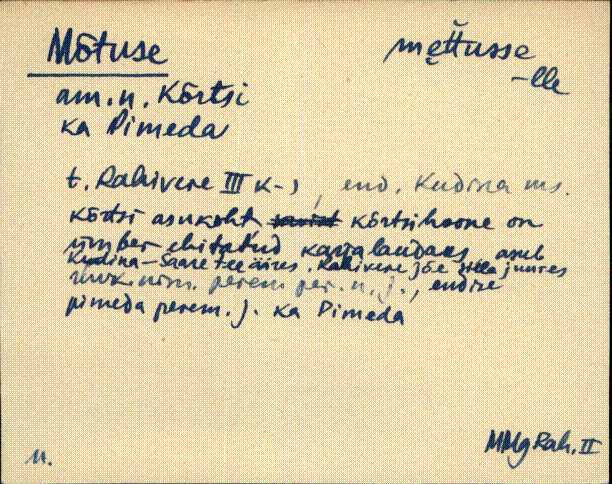 Mõtuse
mẹt̆tusse
-lle
am. n. Kõrtsi
ka Pimeda
t. Rahivere III k-s, end. Kudina ms.
kõrtsi asukoht, kõrtsihoone on
ümber ehitatud karjalaudaks, asub
Kudina-Saare tee ääres, Rahivere jõe silla juures
perem. per. n. j., endise
pimeda perem. j. ka Pimeda
MMg Rah. II
M.